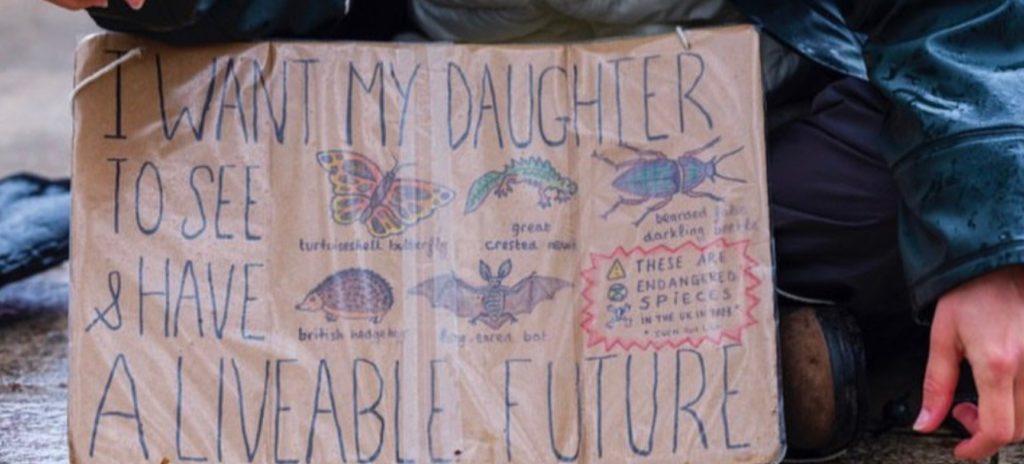 I WANT MY DAUGHTER
TO SEE
turtoiseshell butterfly
great
crested newt
bearded
darkling beetle
& HAVE
british hedgehog
long-eared bat
THESE ARE
ENDANGERED
SPIECES
IN THE UK IN
A LIVEABLE FUTURE